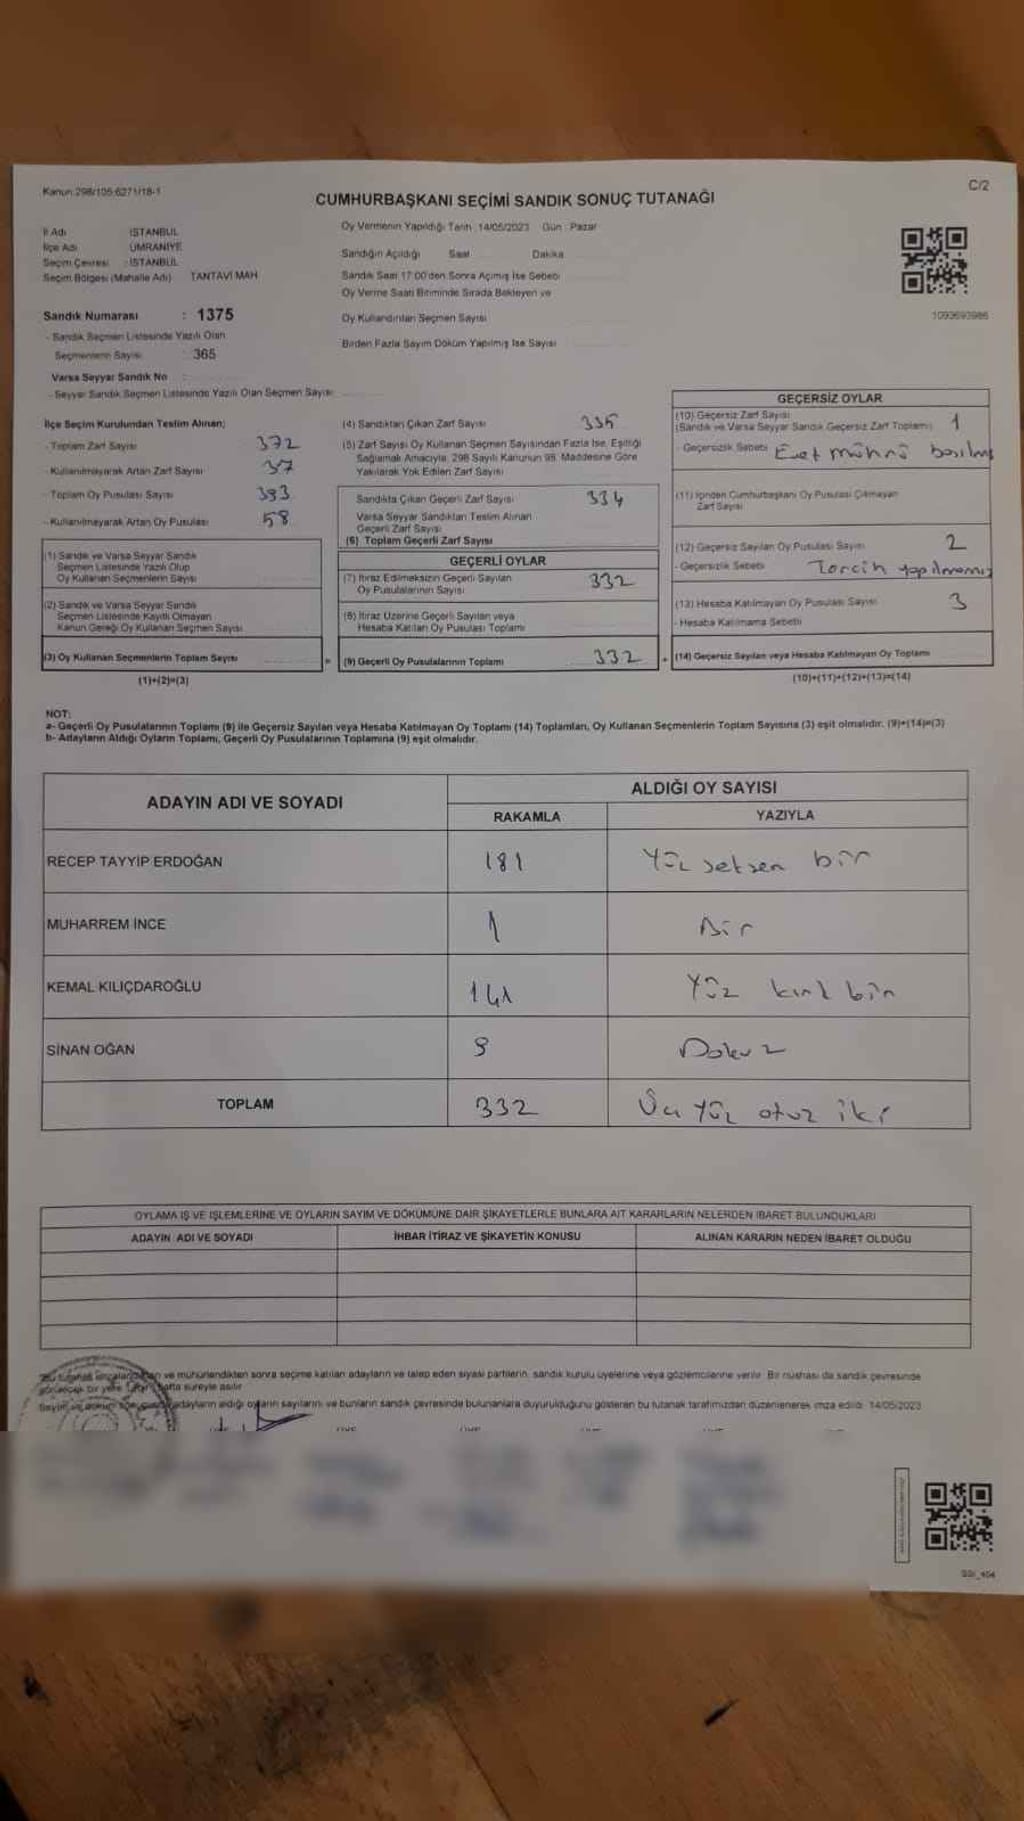 Kanun:298/105-6271/18-1
C/2
CUMHURBAŞKANI SEÇİMİ SANDIK SONUÇ TUTANAĞI
İl Adı : İSTANBUL
İlçe Adı : ÜMRANİYE
Seçim Çevresi : İSTANBUL
Seçim Bölgesi (Mahalle Adı) TANTAVİ MAH
Oy Vermenin Yapıldığı Tarih :14/05/2023 Gün : Pazar
Sandığın Açıldığı Saat Dakika
Sandık Saat 17:00'den Sonra Açılmış İse Sebebi
Oy Verme Saati Bitiminde Sırada Bekleyen ve
Oy Kullandırılan Seçmen Sayısı
Birden Fazla Sayım Döküm Yapılmış İse Sayısı
1093693986
Sandık Numarası : 1375
- Sandık Seçmen Listesinde Yazılı Olan
Seçmenlerin Sayısı : 365
Varsa Seyyar Sandık No :
- Seyyar Sandık Seçmen Listesinde Yazılı Olan Seçmen Sayısı
İlçe Seçim Kurulundan Teslim Alınan;
- Toplam Zarf Sayısı 372
- Kullanılmayarak Artan Zarf Sayısı 37
- Toplam Oy Pusulası Sayısı 393
- Kullanılmayarak Artan Oy Pusulası 58
(1) Sandık ve Varsa Seyyar Sandık
Seçmen Listesinde Yazılı Olup
Oy Kullanan Seçmenlerin Sayısı
(2) Sandık ve Varsa Seyyar Sandık
Seçmen Listesinde Kayıtlı Olmayan
Kanun Gereği Oy Kullanan Seçmen Sayısı
(3) Oy Kullanan Seçmenlerin Toplam Sayısı
(1)+(2)=(3)
(4) Sandıktan Çıkan Zarf Sayısı 335
(5) Zarf Sayısı Oy Kullanan Seçmen Sayısından Fazla İse, Eşitliği
Sağlamak Amacıyla, 298 Sayılı Kanunun 98. Maddesine Göre
Yakılarak Yok Edilen Zarf Sayısı
Sandıkta Çıkan Geçerli Zarf Sayısı 334
Varsa Seyyar Sandıktan Teslim Alınan
Geçerli Zarf Sayısı
(6) Toplam Geçerli Zarf Sayısı
GEÇERLİ OYLAR
(7) İtiraz Edilmeksizin Geçerli Sayılan
Oy Pusulalarının Sayısı 332
(8) İtiraz Üzerine Geçerli Sayılan veya
Hesaba Katılan Oy Pusulası Toplamı
= (9) Geçerli Oy Pusulalarının Toplamı 332 +
GEÇERSİZ OYLAR
(10) Geçersiz Zarf Sayısı
(Sandık ve Varsa Seyyar Sandık Geçersiz Zarf Toplamı) 1
- Geçersizlik Sebebi Evet mührü basılmış
(11) İçinden Cumhurbaşkanı Oy Pusulası Çıkmayan
Zarf Sayısı
(12) Geçersiz Sayılan Oy Pusulası Sayısı 2
- Geçersizlik Sebebi Tercih yapılmamış
(13) Hesaba Katılmayan Oy Pusulası Sayısı 3
- Hesaba Katılmama Sebebi
(14) Geçersiz Sayılan veya Hesaba Katılmayan Oy Toplamı
(10)+(11)+(12)+(13)=(14)
NOT:
a- Geçerli Oy Pusulalarının Toplamı (9) ile Geçersiz Sayılan veya Hesaba Katılmayan Oy Toplamı (14) Toplamları, Oy Kullanan Seçmenlerin Toplam Sayısına (3) eşit olmalıdır. (9)+(14)=(3)
b- Adayların Aldığı Oyların Toplamı, Geçerli Oy Pusulalarının Toplamına (9) eşit olmalıdır.
ADAYIN ADI VE SOYADI
ALDIĞI OY SAYISI
RAKAMLA YAZIYLA
RECEP TAYYİP ERDOĞAN 181 Yüz seksen bir
MUHARREM İNCE 1 Bir
KEMAL KILIÇDAROĞLU 141 Yüz kırk bir
SİNAN OĞAN 9 Dokuz
TOPLAM 332 Üç yüz otuz iki
OYLAMA İŞ VE İŞLEMLERİNE VE OYLARIN SAYIM VE DÖKÜMÜNE DAİR ŞİKAYETLERLE BUNLARA AİT KARARLARIN NELERDEN İBARET BULUNDUKLARI
ADAYIN ADI VE SOYADI İHBAR İTİRAZ VE ŞİKAYETİN KONUSU ALINAN KARARIN NEDEN İBARET OLDUĞU
ve mühürlendikten sonra seçime katılan adayların ve talep eden siyasi partilerin, sandık kurulu üyelerine veya gözlemcilerine verilir. Bir nüshası da sandık çevresinde
görünecek bir yere hafta süreyle asılır.
adayların aldığı oyların sayılarını ve bunların sandık çevresinde bulunanlara duyurulduğunu gösteren bu tutanak tarafımızdan düzenlenerek imza edildi. 14/05/2023